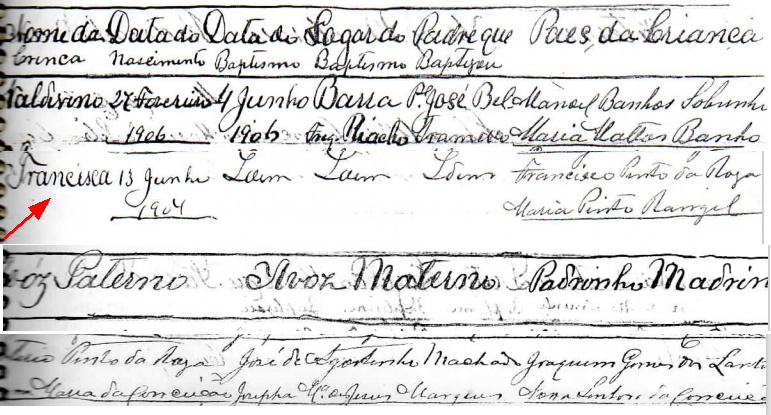 Nome da Data do Data do Lugar do Padre que Paes da Criança
Crinca Nascimento Baptismo Baptismo Baptizou
Valdivino 27 Fevereiro 4 Junho Barra Pe José Bel Manoel Banhos Sobrinho
1906 1906 Freg. Riacho Maria Mattos Banho
Francisca 13 Junho Idem Idem Idem Francisco Pinto da Roza
1904 Maria Pinto Rangel
voz Paterno Avoz Materno Padrinho Madrin
Pinto da Roza José de Agostinho Machado Joaquim Gomes dos Santo
Maria da Conceição Josepha Ma de Jesus Marques da Conceição